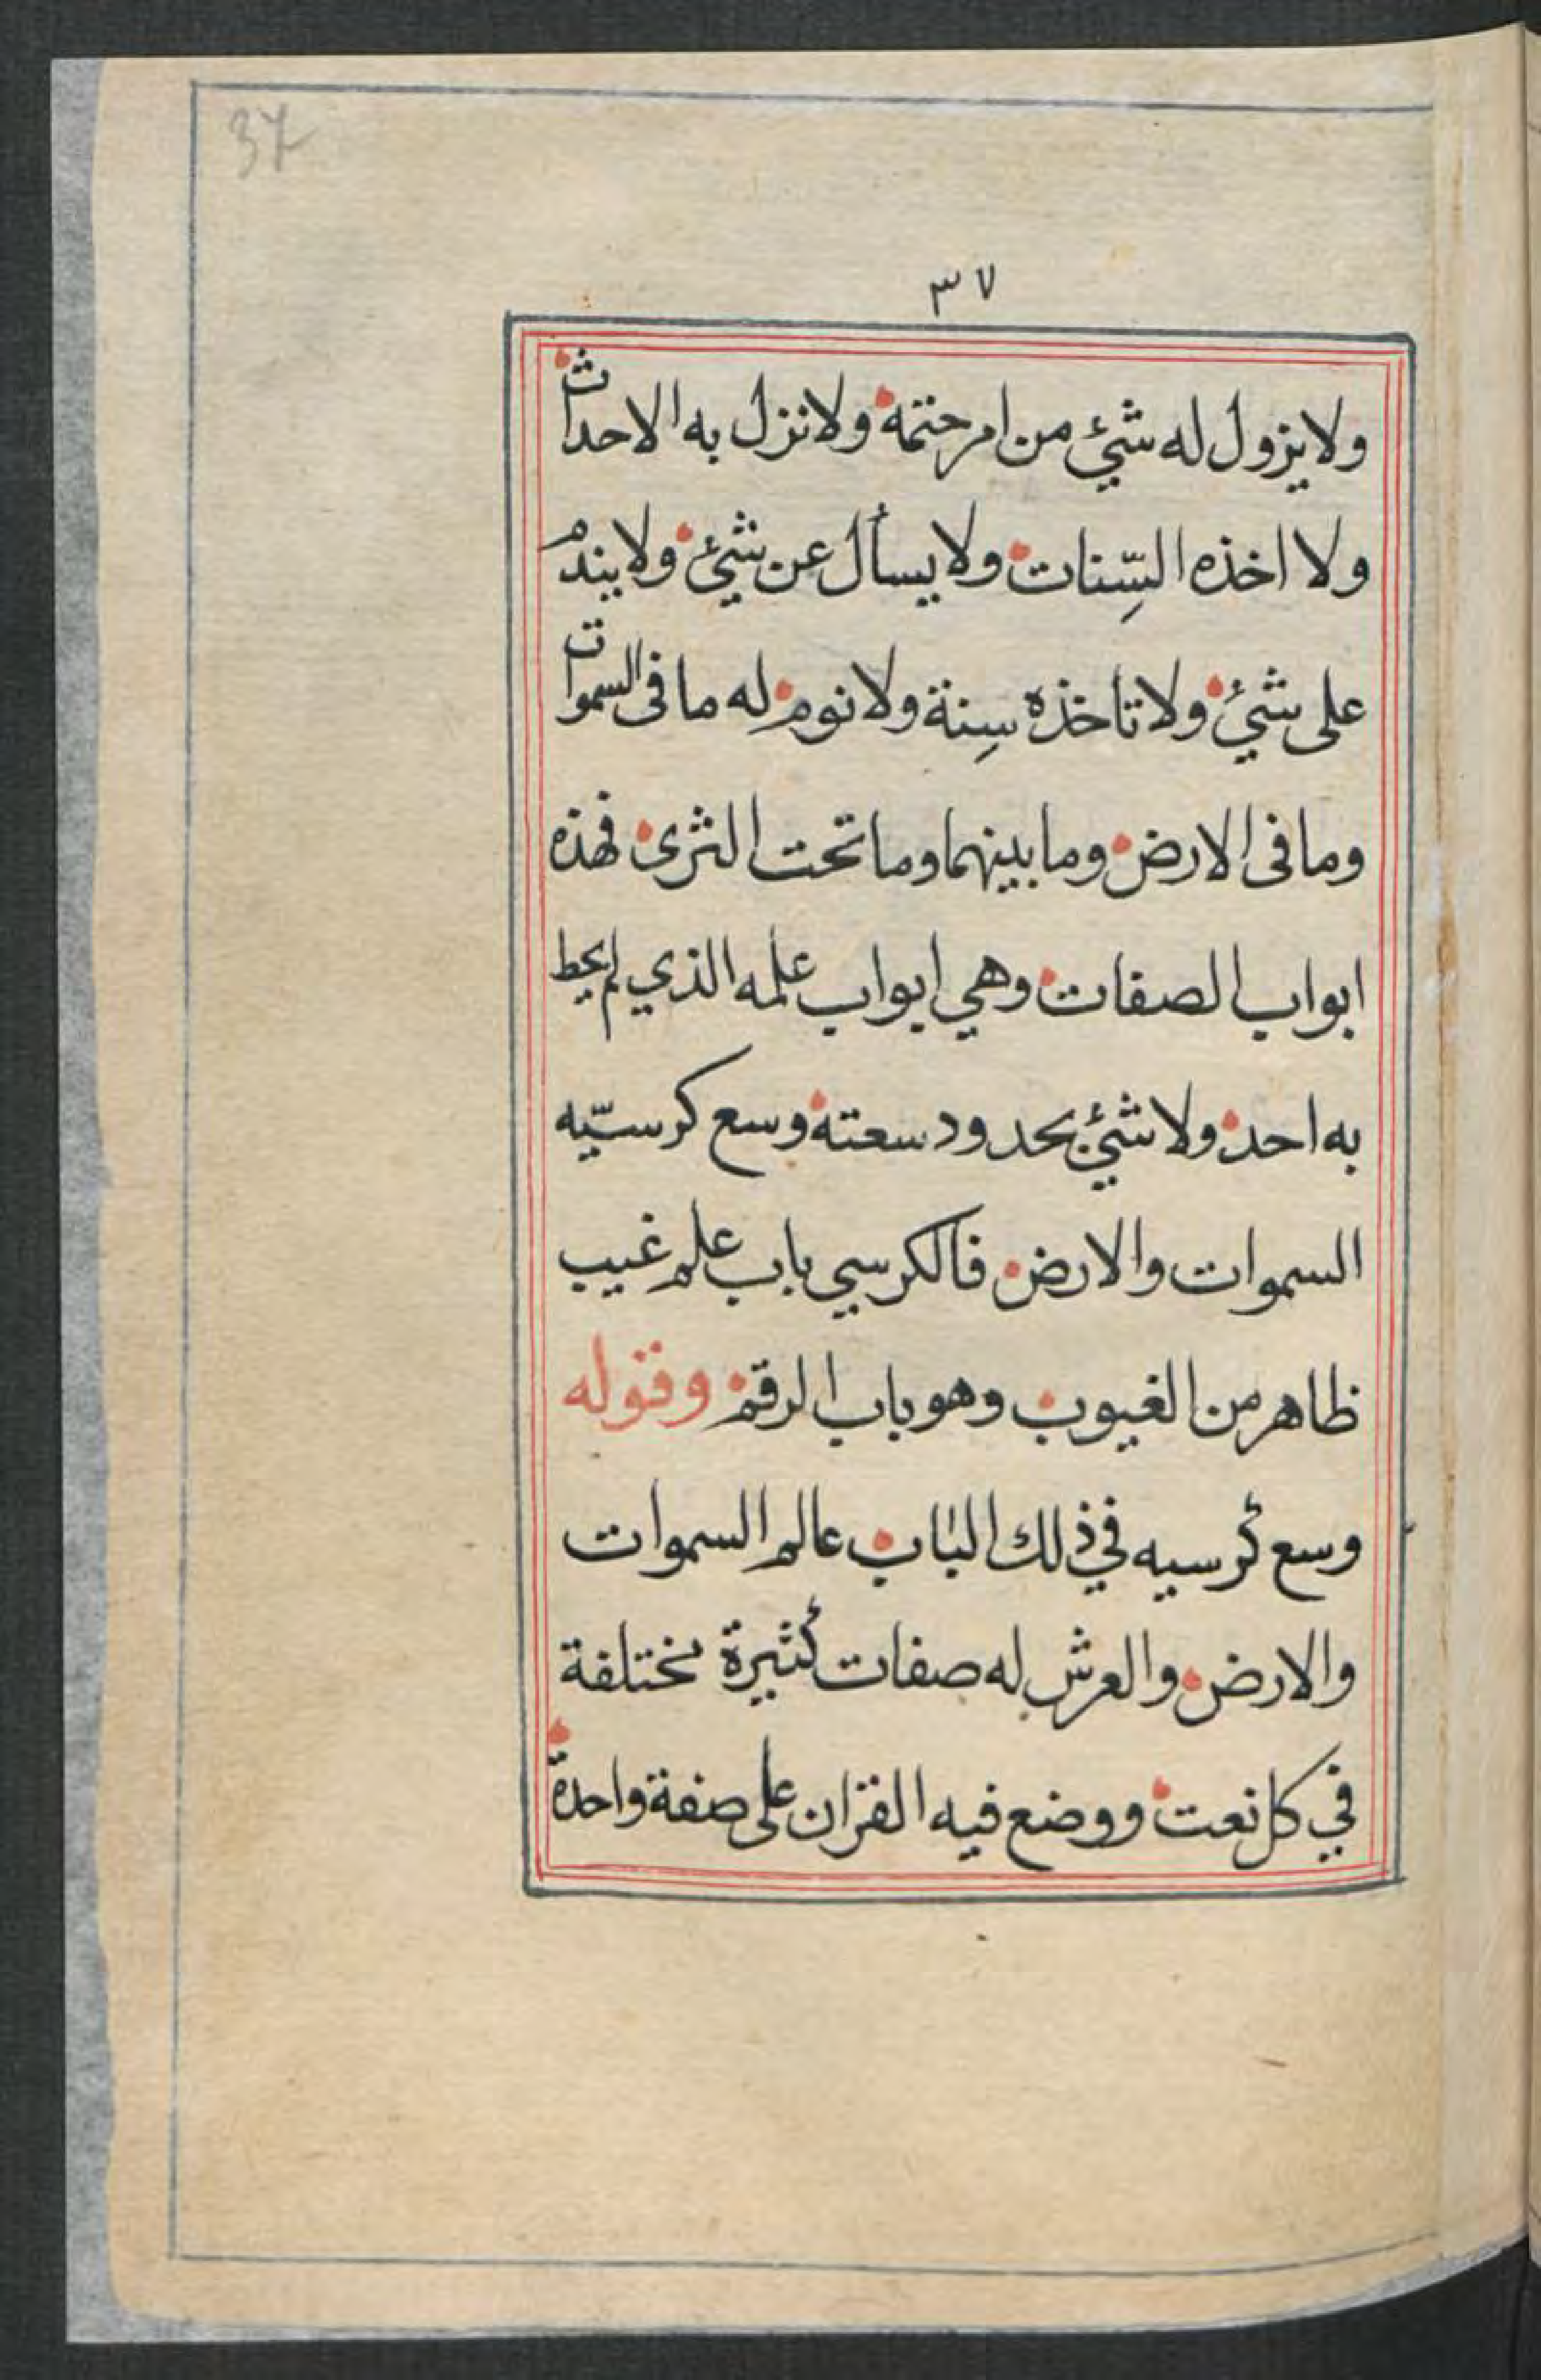 37
٣٧
ولا يزول له شئ من امر حتمه ولا نزل به الاحداث
ولا اخذه السِّنات ولا يسأل عن شئ ولا يندم
على شئ ولا تاخذه سِنة ولا نوم له ما فى السموات
وما فى الارض وما بينهما وما تحت الثرى فهذه
ابواب الصفات وهي ابواب علمه الذي لم يحط
به احد ولا شئ بحدود سعته وسع كرسيّه
السموات والارض فالكرسي باب علم غيب
ظاهر من الغيوب وهو باب الرقم وقوله
وسع كرسيه في ذلك الباب عالم السموات
والارض والعرش له صفات كثيرة مختلفة
في كل نعت ووضع فيه القران على صفة واحدة